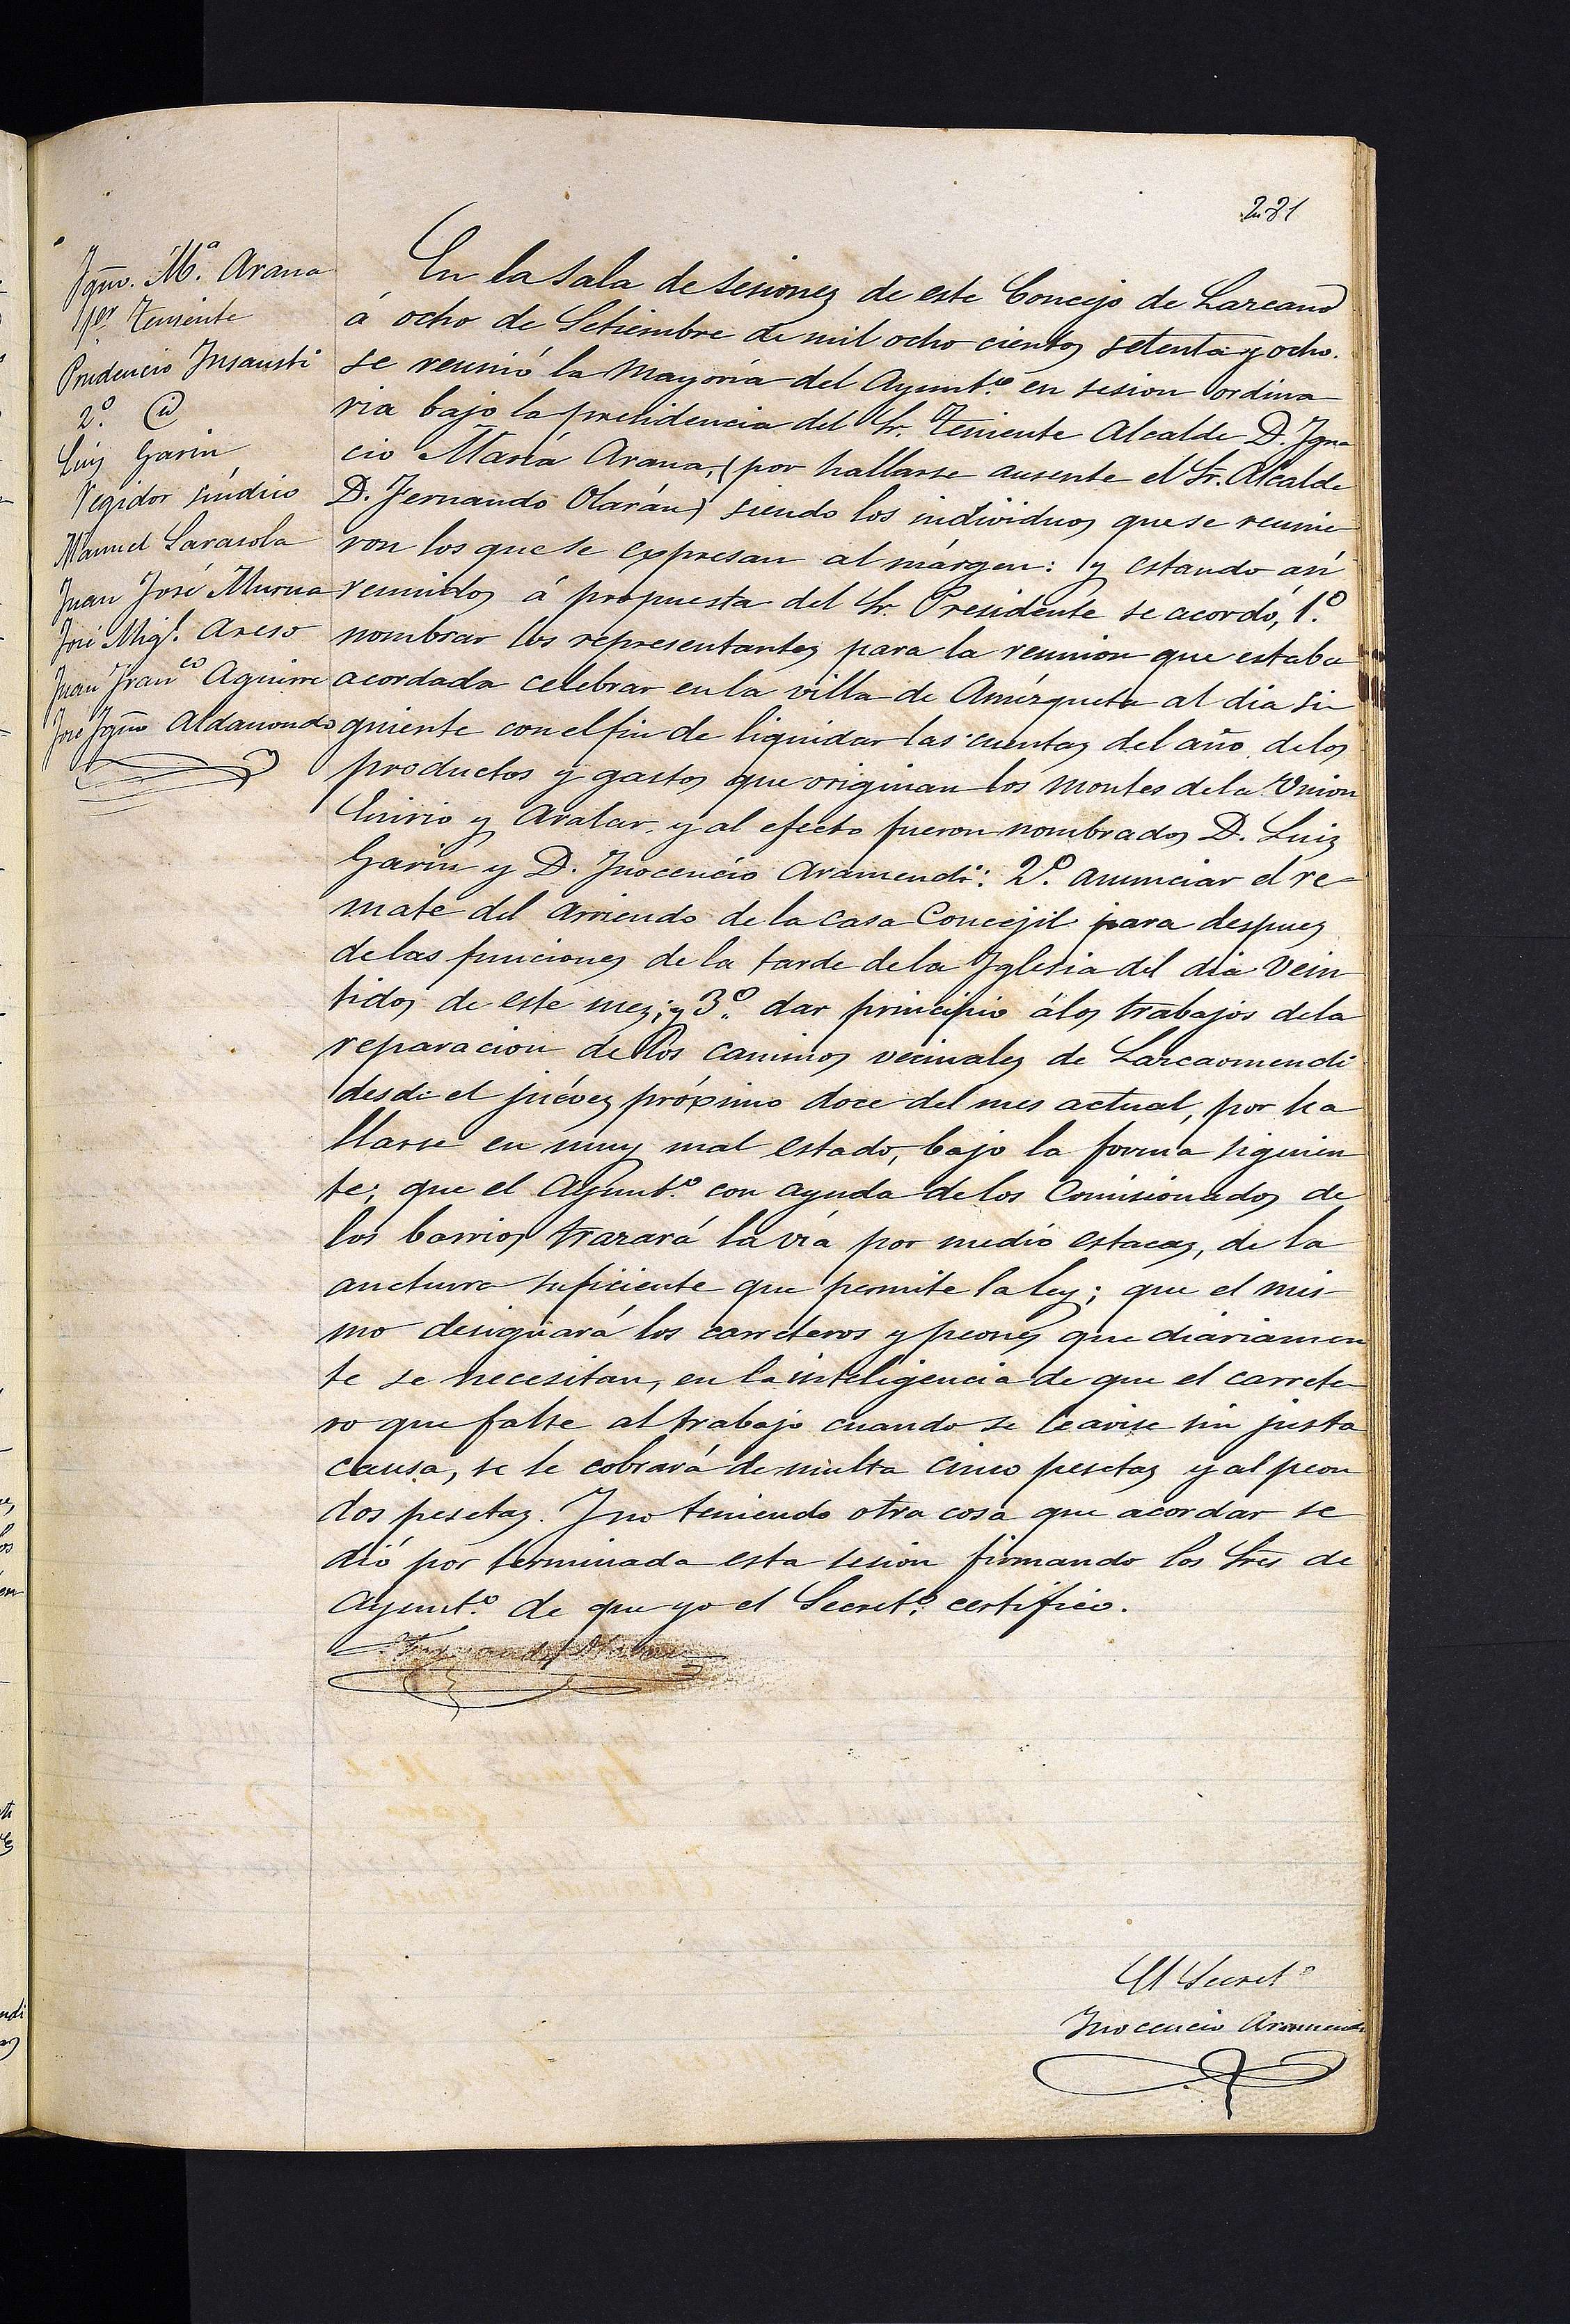 221
Ygnº. M.ª Arana
1er Teniente
Prudencio Insausti
2º. @
Luiz Garin
Regidor síndico
Manuel Sarasola
Juan José Murua
José Migl. Areso
Juan Franco Aguirre
José Ygnº Aldanondo
En la sala de sesionez de este Concejo de Lazcano
á ocho de Setiembre de mil ocho cientos setenta y ocho.
se reunió la Mayoría del Ayuntº. en sesion ordina
ria bajo la presidencia del Sr. Teniente Alcalde D. Ygna
cio María Arana, (por hallarse ausente el Sr. Alcalde
D. Fernando Olarán) siendo los individuos que se reunie
ron los que se expresan al márgen: y estando así
reunidos á propuesta del Sr. Presidente se acordó, 1º.
nombrar los representantes para la reunion que estaba
acordada celebrar en la villa de Amézqueta al dia si-
guiente con el fin de liquidar las cuentas del año de los
productos y gastos que originan los montes de la Union
Enirio y Aralar. y al efecto fueron nombrados D. Luiz
Garin y D. Inocencio Aramendi: 2º. anunciar el re-
mate del arriendo de la casa Concejil para despues
de las funciones de la tarde de la Yglesia del dia Vein
tidos de este mez; y 3º. dar principio á los trabajos de la
reparacion de los caminos vecinales de Lazcaomendi
desde el juévez próximo doce del mes actual, por ha
llarse en muy mal estado, bajo la forma siguien
te; que el Ayuntº. con ayuda de los Comisionados de
los barrios trazará la vía por medio estacas, de la
anchura suficiente que permite la ley; que el mis-
mo designará los carreteros y peones que diariamen
te se necesitan, en la inteligencia de que el carrete-
ro que falte al trabajo cuando se le avise sin justa
causa, se le cobrará de multa cinco pesetas y al peon
dos pesetas. Y no teniendo otra cosa que acordar se
dió por terminada esta sesion firmando los Sres de
Ayuntº. de que yo el Secretº. certifico.
Fernando Olaran
El Secretº
Inocencio Aramendi